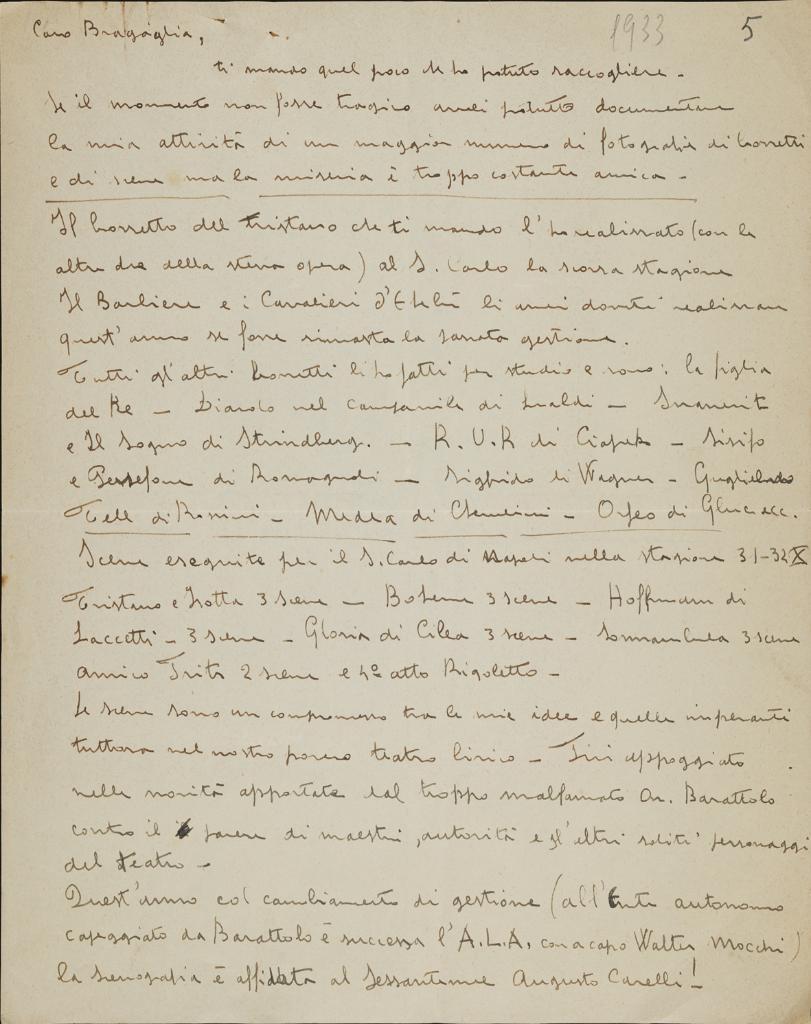 1933 5
Caro Bragaglia,
ti mando quel poco che ho potuto raccogliere -
Se il momento non fosse tragico avrei potuto documentare
la mia attività di un maggior numero di fotografie di bozzetti
e di scene ma la miseria è troppo costante amica -
Il bozzetto del tristano che ti mando l'ho realizzato (con le
altre due della stessa opera) al S. Carlo la scorsa stagione
Il Barbiere e i Cavalieri d'Ekebù li avrei dovuti realizzare
quest'anno se fosse rimasta la passata gestione.
Tutti gl'altri bozzetti li ho fatti per studio e sono: la figlia
del Re - Diavolo nel campanile di Lualdi -
e Il Sogno di Strindberg. - R.U.R di Ciapek - Sisifo
e Persefone di Romagnoli - Sigfrido di Wagner - Guglielmo
Tell di Rossini - Medea di Cherubini - Orfeo di Gluc ecc.
Scene eseguite per il S. Carlo di Napoli nella stagione 31-32 X
Tristano e Isotta 3 scene - Boheme 3 scene - Hoffmann di
Laccetti - 3 scene - Gloria di Cilea 3 scene - Sonnambula 3 scene
amico Fritz 2 scene e 4º atto Rigoletto -
Le scene sono un compromesso tra le mie idee e quelle imperanti
tuttora nel nostro povero teatro lirico - Fui appoggiato
nelle novità apportate dal troppo malfamato Av. Barattolo
contro il parere di maestri, autorità e gl'altri soliti personaggi
del teatro -
Quest'anno col cambiamento di gestione (all'Ente autonomo
capeggiato da Barattolo è successa l'A.L.A. con a capo Walter Mocchi)
la scenografia è affidata al sessantenne Augusto Carelli!